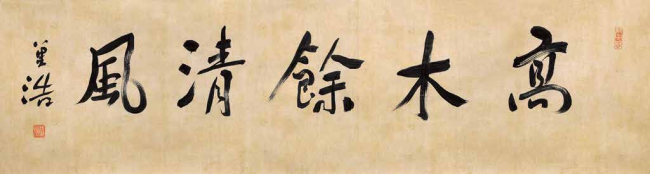 高木餘清風
浩